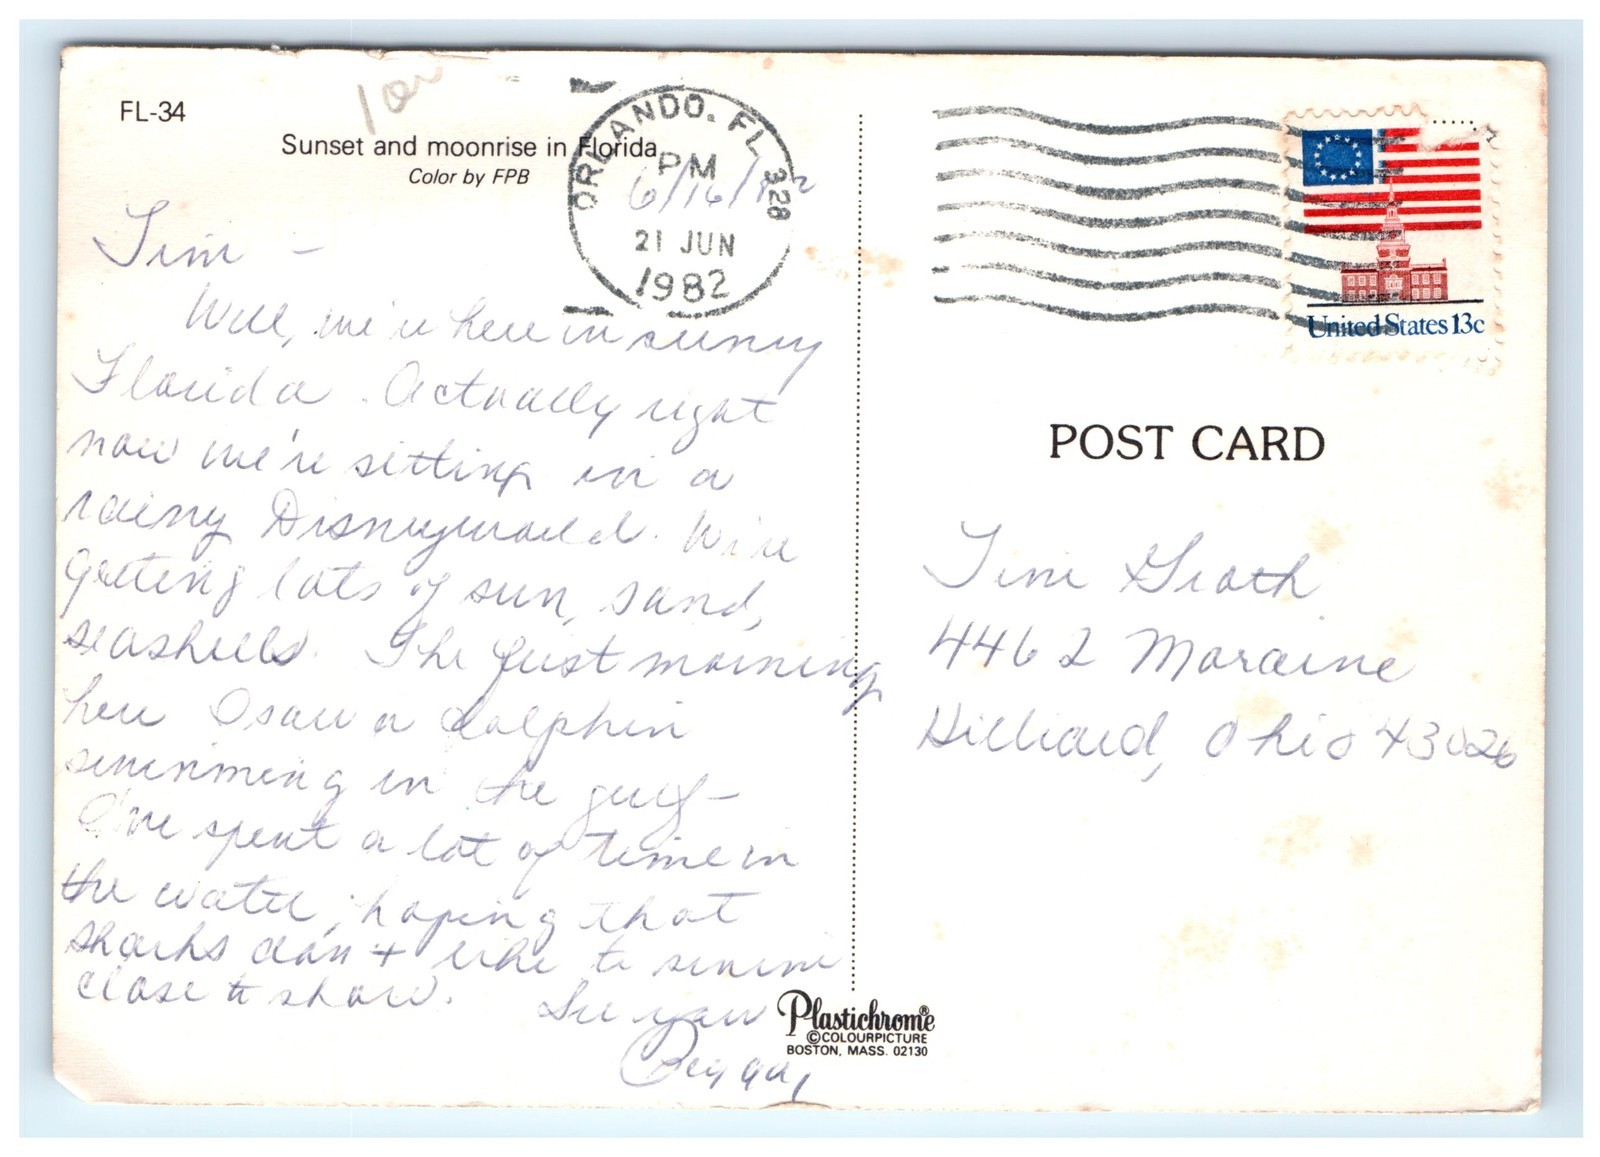 FL-34
Sunset and moonrise in Florida
Color by FPB
ORLANDO, FL 328
PM
21 JUN
1982
6/16/82
Tim -
Well, we're here in sunny
Florida. Actually right
now we're sitting in a
rainy Disneyworld. We're
getting lots of sun, sand,
seashells. The first morning
here I saw a dolphin
swimming in the gulf -
I've spent a lot of time in
the water, hoping that
sharks don't like to swim
close to shore.
See you
Peggy
United States 13c
POST CARD
Tim Groth
4462 Moraine
Hilliard, Ohio 43026
Plastichrome®
©COLOURPICTURE
BOSTON, MASS. 02130